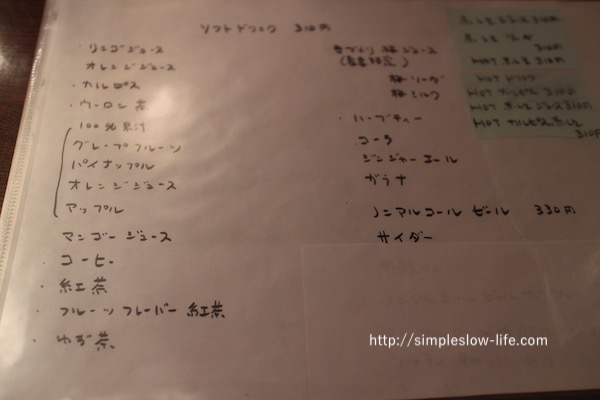 ソフトドリンク 310円
・リンゴジュース
オレンジジュース
・カルピス
・ウーロン茶
100%果汁
グレープフルーツ
パイナップル
オレンジジュース
アップル
マンゴージュース
・コーヒー
・紅茶
・フルーツフレーバー紅茶
・ゆず茶
・手づくり梅ジュース
梅ソーダ
梅ミルク
・ハーブティー
コーラ
ジンジャーエール
ガラナ
ノンアルコールビール 330円
サイダー
310円
HOT カルピス 310円
310円
http://simpleslow-life.com